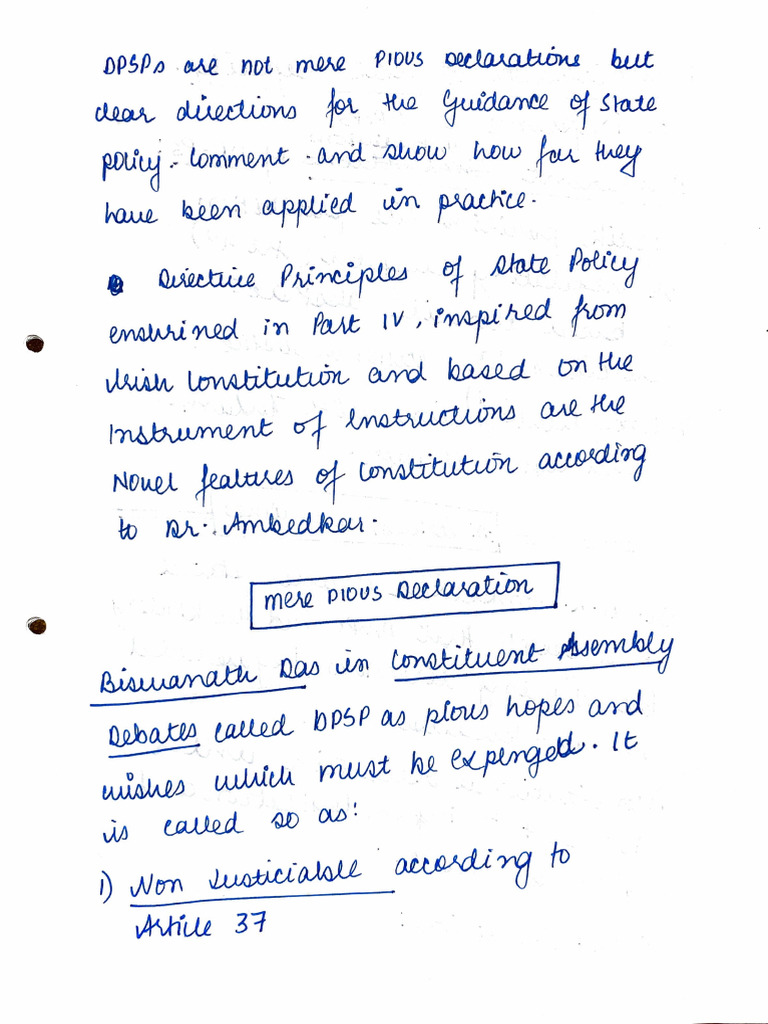 DPSPs are not mere PIOUS Declarations but
clear directions for the Guidance of State
policy. Comment and show how far they
have been applied in practice.
Directive Principles of State Policy
enshrined in Part IV, inspired from
Irish Constitution and based on the
Instrument of Instructions are the
Novel features of Constitution according
to Dr. Ambedkar.
Mere PIOUS Declaration
Biswanath Das in Constituent Assembly
Debates called DPSP as pious hopes and
wishes which must be expenged. It
is called so as:
1) Non Justiciable according to
Article 37